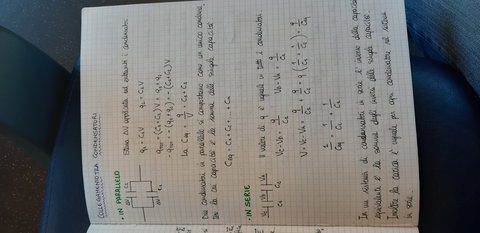 COLLEGAMENTO TRA CONDENSATORI
• IN PARALLELO
Stessa ΔV applicata ad entrambi i condensatori.
q₁ = C₁V q₂ = C₂V
q = (C₁ + C₂)V = q₁ + q₂
-q = -(q₁ + q₂) = -(C₁ + C₂)V
La Ceq = q/V = C₁ + C₂
Due condensatori in parallelo si comportano come un unico condens.
in cui la capacità è la somma delle singole capacità
Ceq = C₁ + C₂ + ... + Cn
• IN SERIE
Il valore di q è uguale in tutti i condensatori
VC - VB = q/C₁ VB - VA = q/C₂
V = VC - VA = q/C₁ + q/C₂ = q (1/C₁ + 1/C₂) = q/Ceq
1/Ceq = 1/C₁ + 1/C₂
In un sistema di condensatori in serie l'inverso della capacità
equivalente è la somma degli inversi delle singole capacità.
Inoltre la carica è uguale per ogni condensatore nel sistema
in serie.